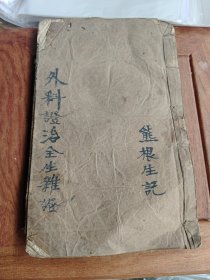 外科證治全生雜症
熊根生記